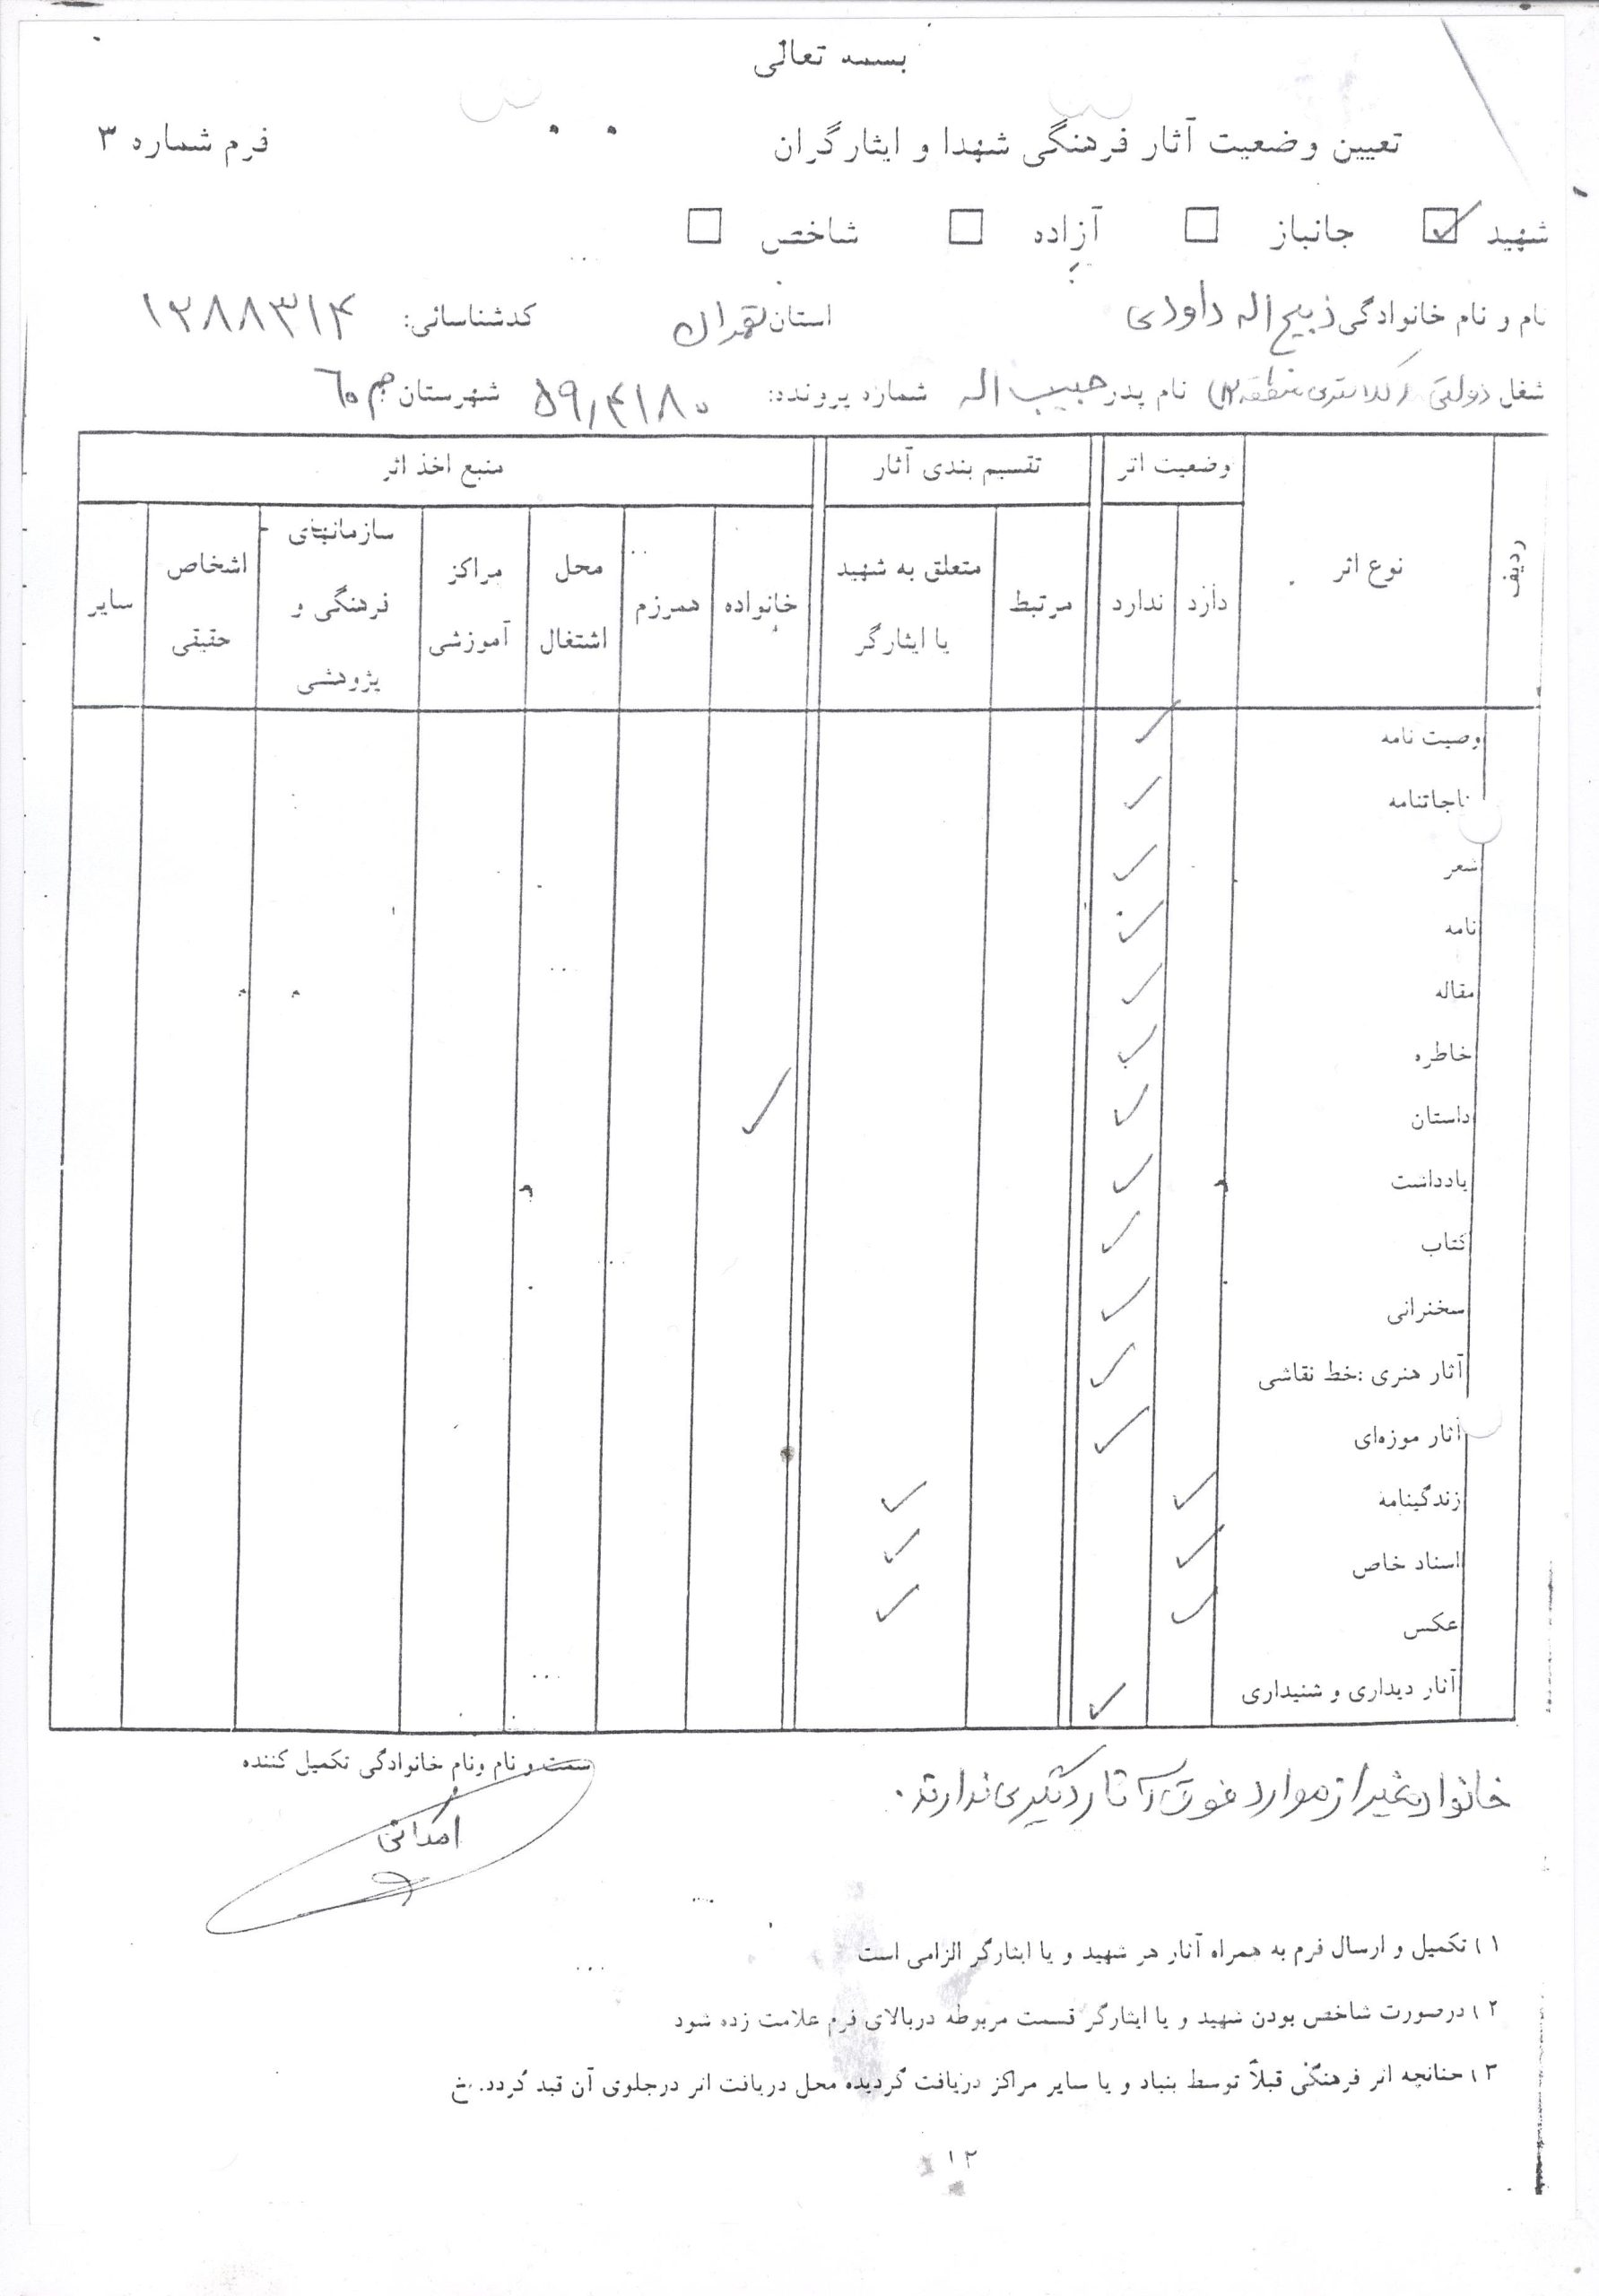 بسمه تعالی
تعیین وضعیت آثار فرهنگی شهدا و ایثارگران
فرم شماره ۳
شهید جانباز آزاده شاخص
نام و نام خانوادگی ذبیح اله داودی استان تهران کدشناسائی: ۱۲۸۸۳۱۴
شغل دولتی (کلانتری منطقه ۱۲) نام پدر حبیب اله شماره پرونده: ۵۹٫۴۱۸۰ شهرستان
ردیف نوع اثر وضعیت اثر تقسیم بندی آثار منبع اخذ اثر
دارد ندارد مرتبط متعلق به شهید یا ایثارگر خانواده همرزم محل اشتغال مراکز آموزشی سازمانهای فرهنگی و پژوهشی اشخاص حقیقی سایر
وصیت نامه ✓
ناجاتنامه ✓
شعر ✓
نامه ✓
مقاله ✓
خاطره ✓
داستان ✓ ✓
یادداشت ✓
کتاب ✓
سخنرانی ✓
آثار هنری :خط نقاشی ✓
آثار موزه‌ای ✓
زندگینامه ✓ ✓
اسناد خاص ✓ ✓
عکس ✓ ✓
آثار دیداری و شنیداری ✓
سمت و نام ونام خانوادگی تکمیل کننده
خانواده بغیر از موارد فوق آثار دیگری ندارند.
۱) تکمیل و ارسال فرم به همراه آثار هر شهید و یا ایثارگر الزامی است
۲) درصورت شاخص بودن شهید و یا ایثارگر قسمت مربوطه دربالای فرم علامت زده شود
۳) چنانچه اثر فرهنگی قبلاً توسط بنیاد و یا سایر مراکز دریافت گردیده محل دریافت اثر درجلوی آن قید گردد.
۱۲